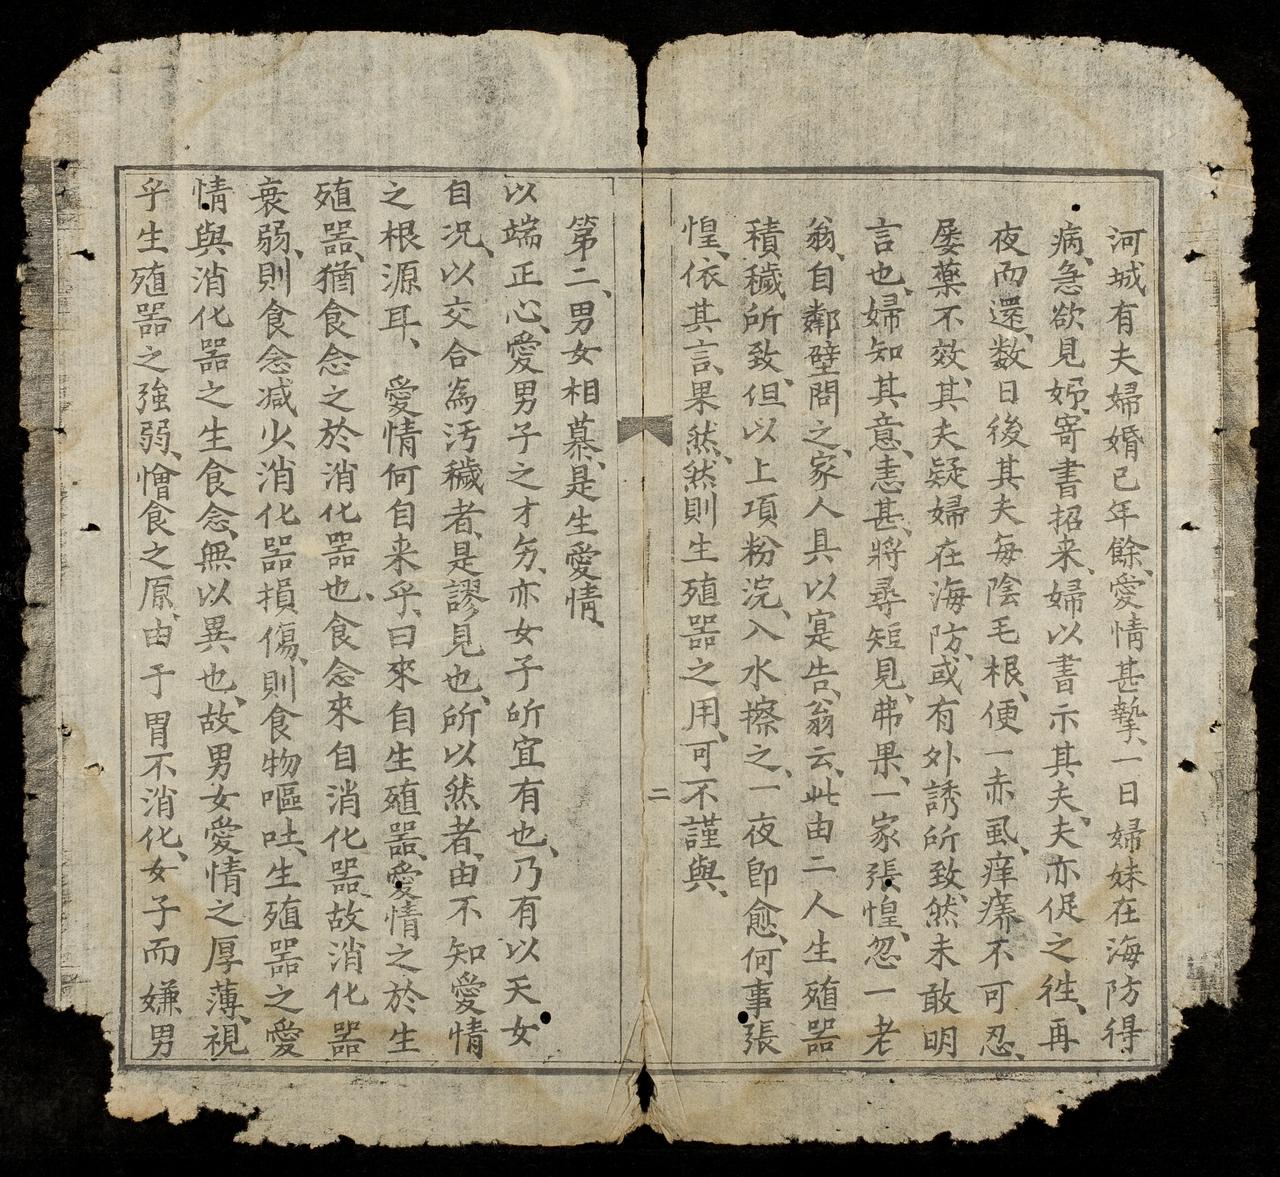 河城有夫婦婚已年餘、愛情甚摯、一日婦妹在海防得
病、急欲見姊、寄書招来、婦以書示其夫、夫亦促之徃、再
夜而還、数日後其夫每陰毛根、便一赤虱、痒癢不可忍、
屡藥不效、其夫疑婦在海防、或有外誘所致、然未敢明
言也、婦知其意、恚甚、將尋短見、弗果、一家張惶、忽一老
翁、自鄰壁問之、家人具以寔告、翁云、此由二人生殖器
積穢所致、但以上項粉浣、入水擦之、一夜卽愈、何事張
惶、依其言、果然、然則生殖器之用、可不謹與、
二
第二、男女相慕、是生愛情、
以端正心、愛男子之才、亦女子所宜有也、乃有以天女
自况、以交合為汚穢者、是謬見也、所以然者、由不知愛情
之根源耳、 愛情何自来乎、曰來自生殖器、愛情之於生
殖器、猶食念之於消化器也、食念來自消化器、故消化器
衰弱、則食念减少、消化器損傷、則食物嘔吐、生殖器之愛
情、與消化器之生食念、無以異也、故男女愛情之厚薄、視
乎生殖器之強弱、憎食之原、由于胃不消化、女子而嫌男